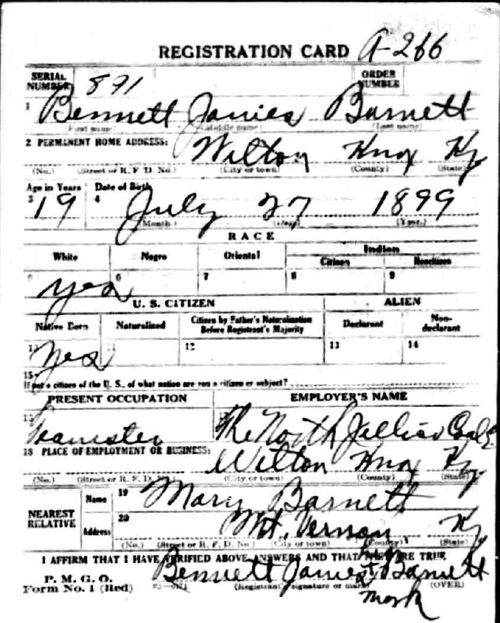 REGISTRATION CARD A-266
SERIAL NUMBER 891 ORDER NUMBER
1 Bennett James Barnett
(First name) (Middle name) (Last name)
2 PERMANENT HOME ADDRESS:
Wilton Knox Ky
(No.) (Street or R. F. D. No.) (City or town) (County) (State)
Age in Years Date of Birth
3 19 4 July 27 1899
(Month) (Day) (Year)
RACE
White Negro Oriental Indian
Citizen Noncitizen
5 6 7 8 9
yes
U. S. CITIZEN ALIEN
Native Born Naturalized Citizen by Father's Naturalization Before Registrant's Majority Declarant Non-declarant
10 11 12 13 14
yes
15
If not a citizen of the U. S., of what nation are you a citizen or subject?
PRESENT OCCUPATION EMPLOYER'S NAME
Teamster The North Jellico Coal
18 PLACE OF EMPLOYMENT OR BUSINESS:
Wilton Knox Ky.
(No.) (Street or R. F. D. (City or town) (County) (State)
NEAREST RELATIVE
Name 19 Mary Barnett
Address 20 Mt. Vernon Ky
(No.) (Street or R. F. D. No.) (City or town) (County) (State)
I AFFIRM THAT I HAVE VERIFIED ABOVE ANSWERS AND THAT THEY ARE TRUE
P. M. G. O.
Form No. 1 (Red)
Bennett James Barnett
(Registrant's signature or mark) (OVER)
mark